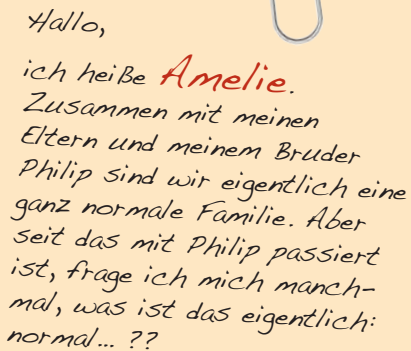 Hallo,
ich heiße Amelie.
Zusammen mit meinen
Eltern und meinem Bruder
Philip sind wir eigentlich eine
ganz normale Familie. Aber
seit das mit Philip passiert
ist, frage ich mich manch-
mal, was ist das eigentlich:
normal... ??